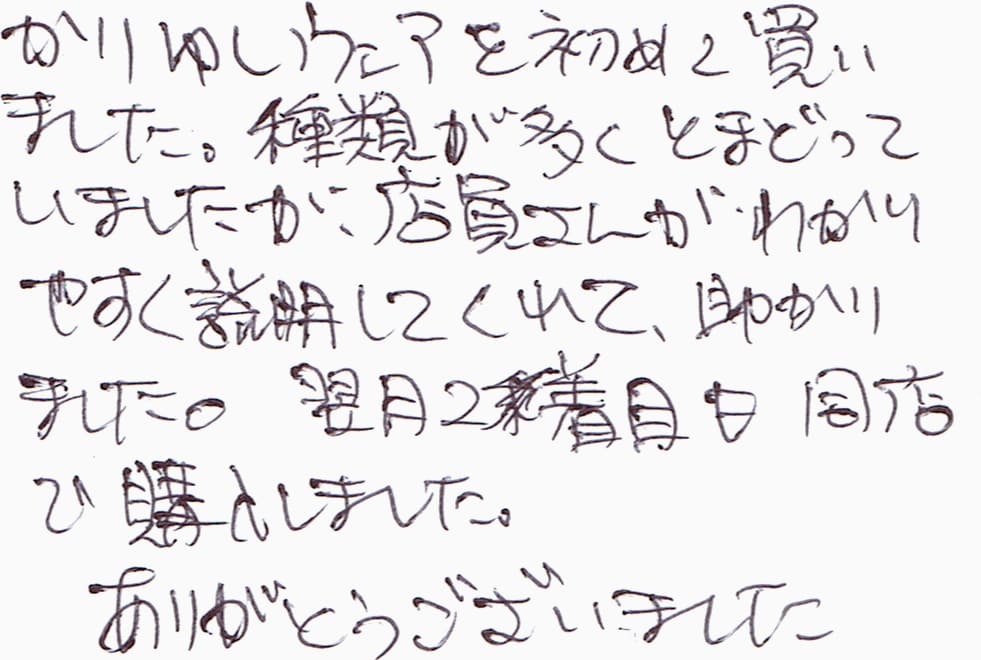 かりゆしウェアを初めて買い
ました。種類が多くとまどって
いましたが、店員さんがわかり
やすく説明してくれて、助かり
ました。翌月2着目も同店
で購入しました。
ありがとうございました